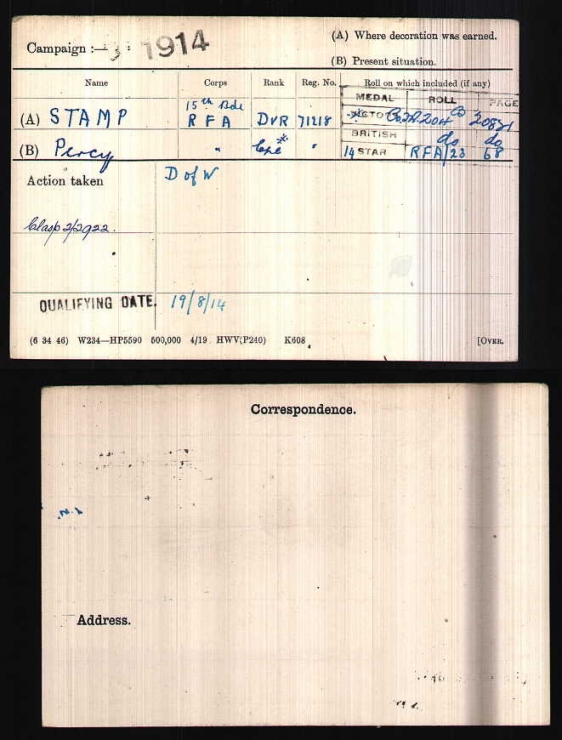 Campaign :— 3: 1914
(A) Where decoration was earned.
(B) Present situation.
Name Corps Rank Reg. No. Roll on which included (if any)
MEDAL ROLL PAGE
15th Bde
(A) STAMP RFA DVR 71218 VICTORY RFA 204 B 20821
BRITISH do do
(B) Percy " Cpl* " 14 STAR RFA/23 68
Action taken D of W
Clasp 2/2922.
QUALIFYING DATE. 19/8/14
(6 34 46) W234—HP5590 500,000 4/19 HWV(P240) K608 [OVER.
Correspondence.
Address.